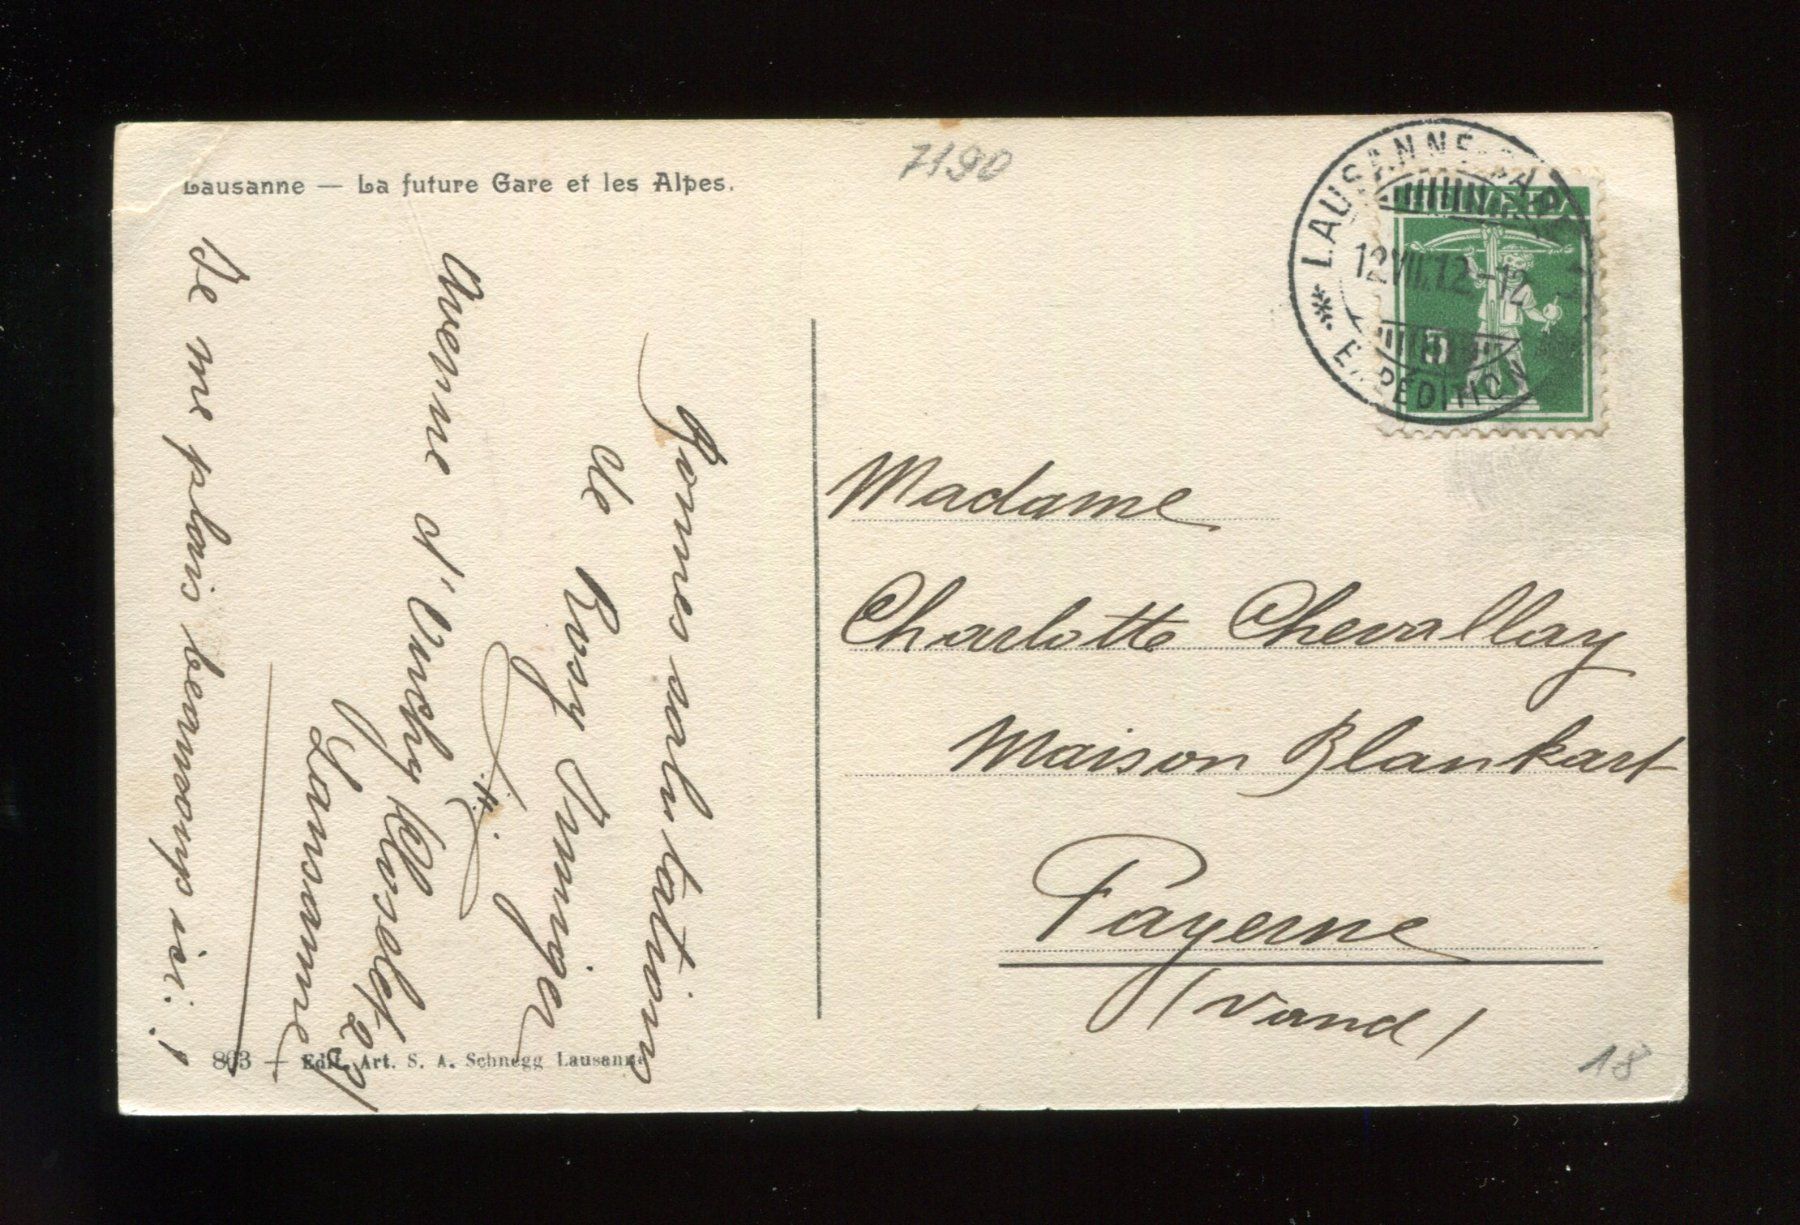 Lausanne — La future Gare et les Alpes.
7190
LAUSANNE
12.VII.12.-12
EXPÉDITION
HELVETIA
5
Bonnes salutations
de Rosy Imniger
Avenue d'Ouchy
Lausanne
Je me plais beaucoup ici. !
Madame
Charlotte Chevallay
Maison Blankart
Payerne
(Vaud)
803 — Edit. Art. S. A. Schnegg Lausanne
18